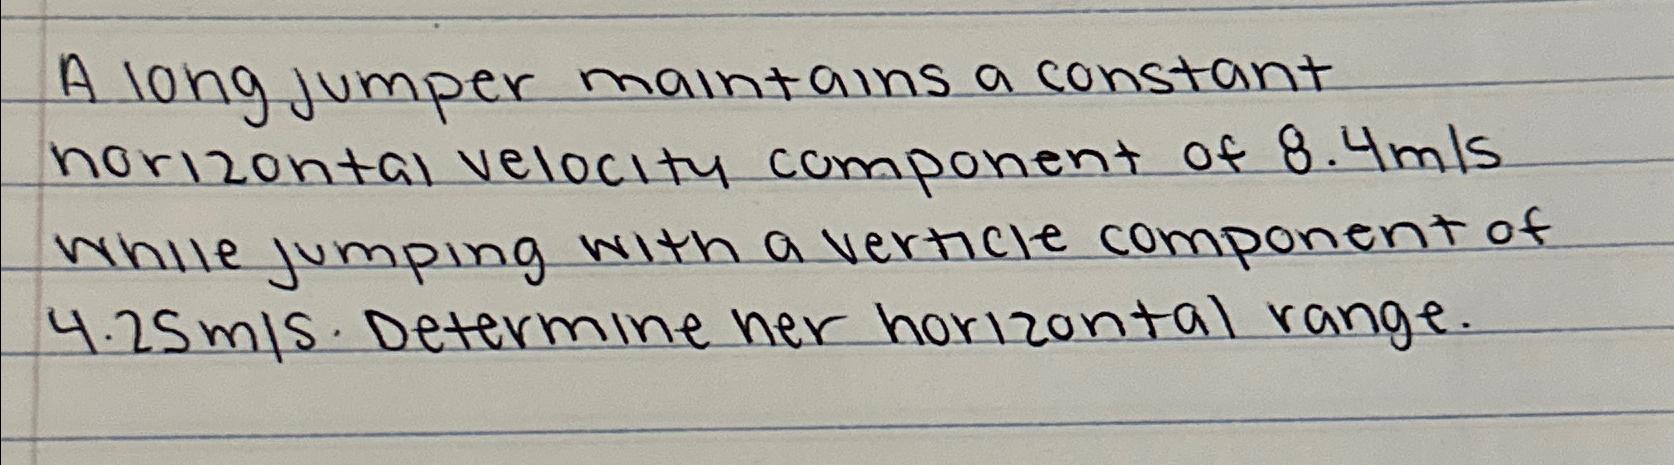 A long jumper maintains a constant
horizontal velocity component of 8.4m/s
while jumping with a verticle component of
4.25m/s. Determine her horizontal range.